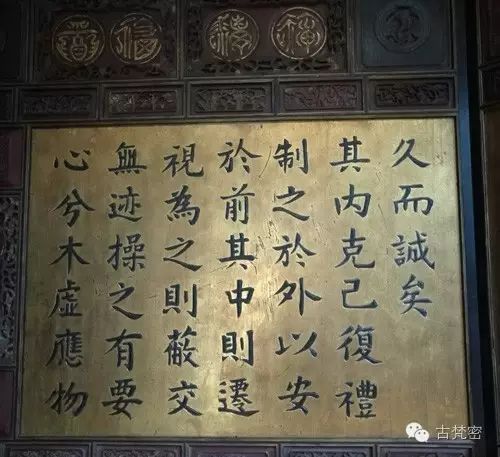 心兮木虛應物
無迹操之有要
視為之則蔽交
於前其中則遷
制之於外以安
其内克己復禮
久而誠矣
古梵密